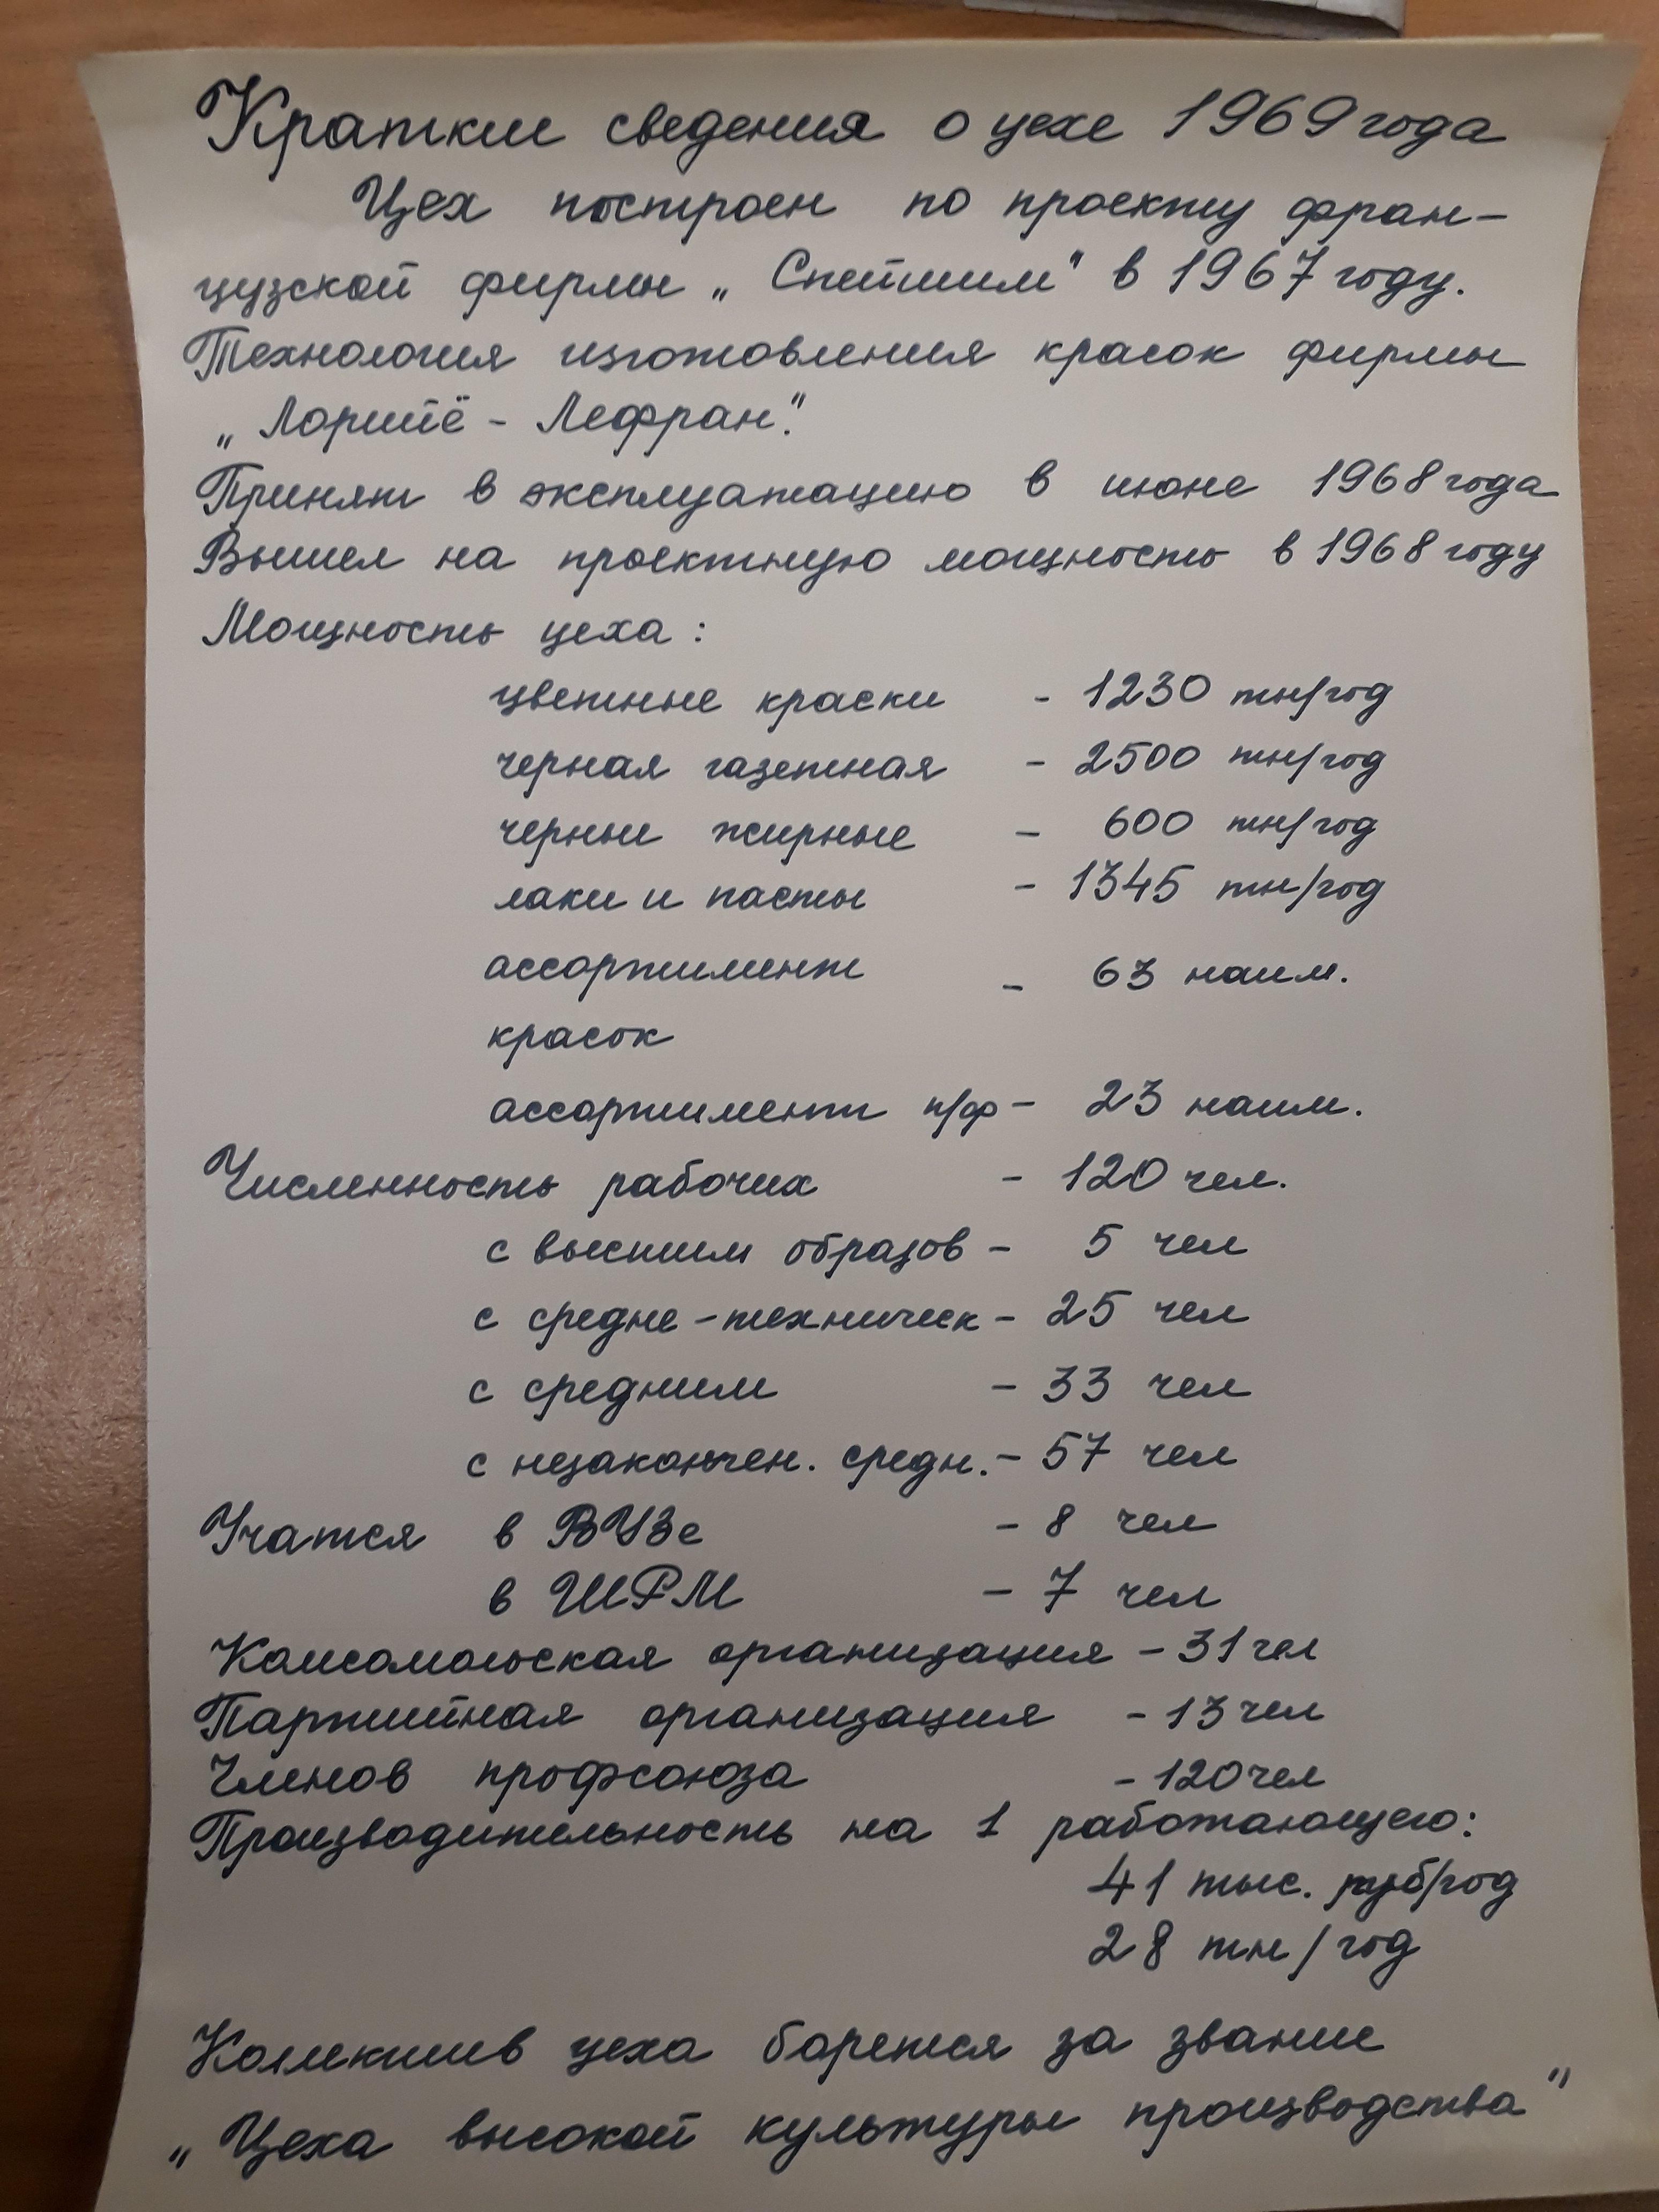 Краткие сведения о цехе 1969 года
Цех построен по проекту фран-
цузской фирмы „Спейшим" в 1967 году.
Технология изготовления красок фирмы
„Лорийё - Лефран".
Принят в эксплуатацию в июне 1968 года
Вышел на проектную мощность в 1968 году
Мощность цеха:
цветные краски - 1230 тн/год
черная газетная - 2500 тн/год
черные жирные - 600 тн/год
лаки и пасты - 1345 тн/год
ассортимент - 63 наим.
красок
ассортимент п/ф - 23 наим.
Численность рабочих - 120 чел.
с высшим образов - 5 чел
с средне-техническ - 25 чел
с средним - 33 чел
с незакончен. средн. - 57 чел
Учатся в ВУЗе - 8 чел
в ШРМ - 7 чел
Комсомольская организация - 31 чел
Партийная организация - 13 чел
Членов профсоюза - 120 чел
Производительность на 1 работающего:
41 тыс. руб/год
28 тн/год
Коллектив цеха борется за звание
„Цеха высокой культуры производства"